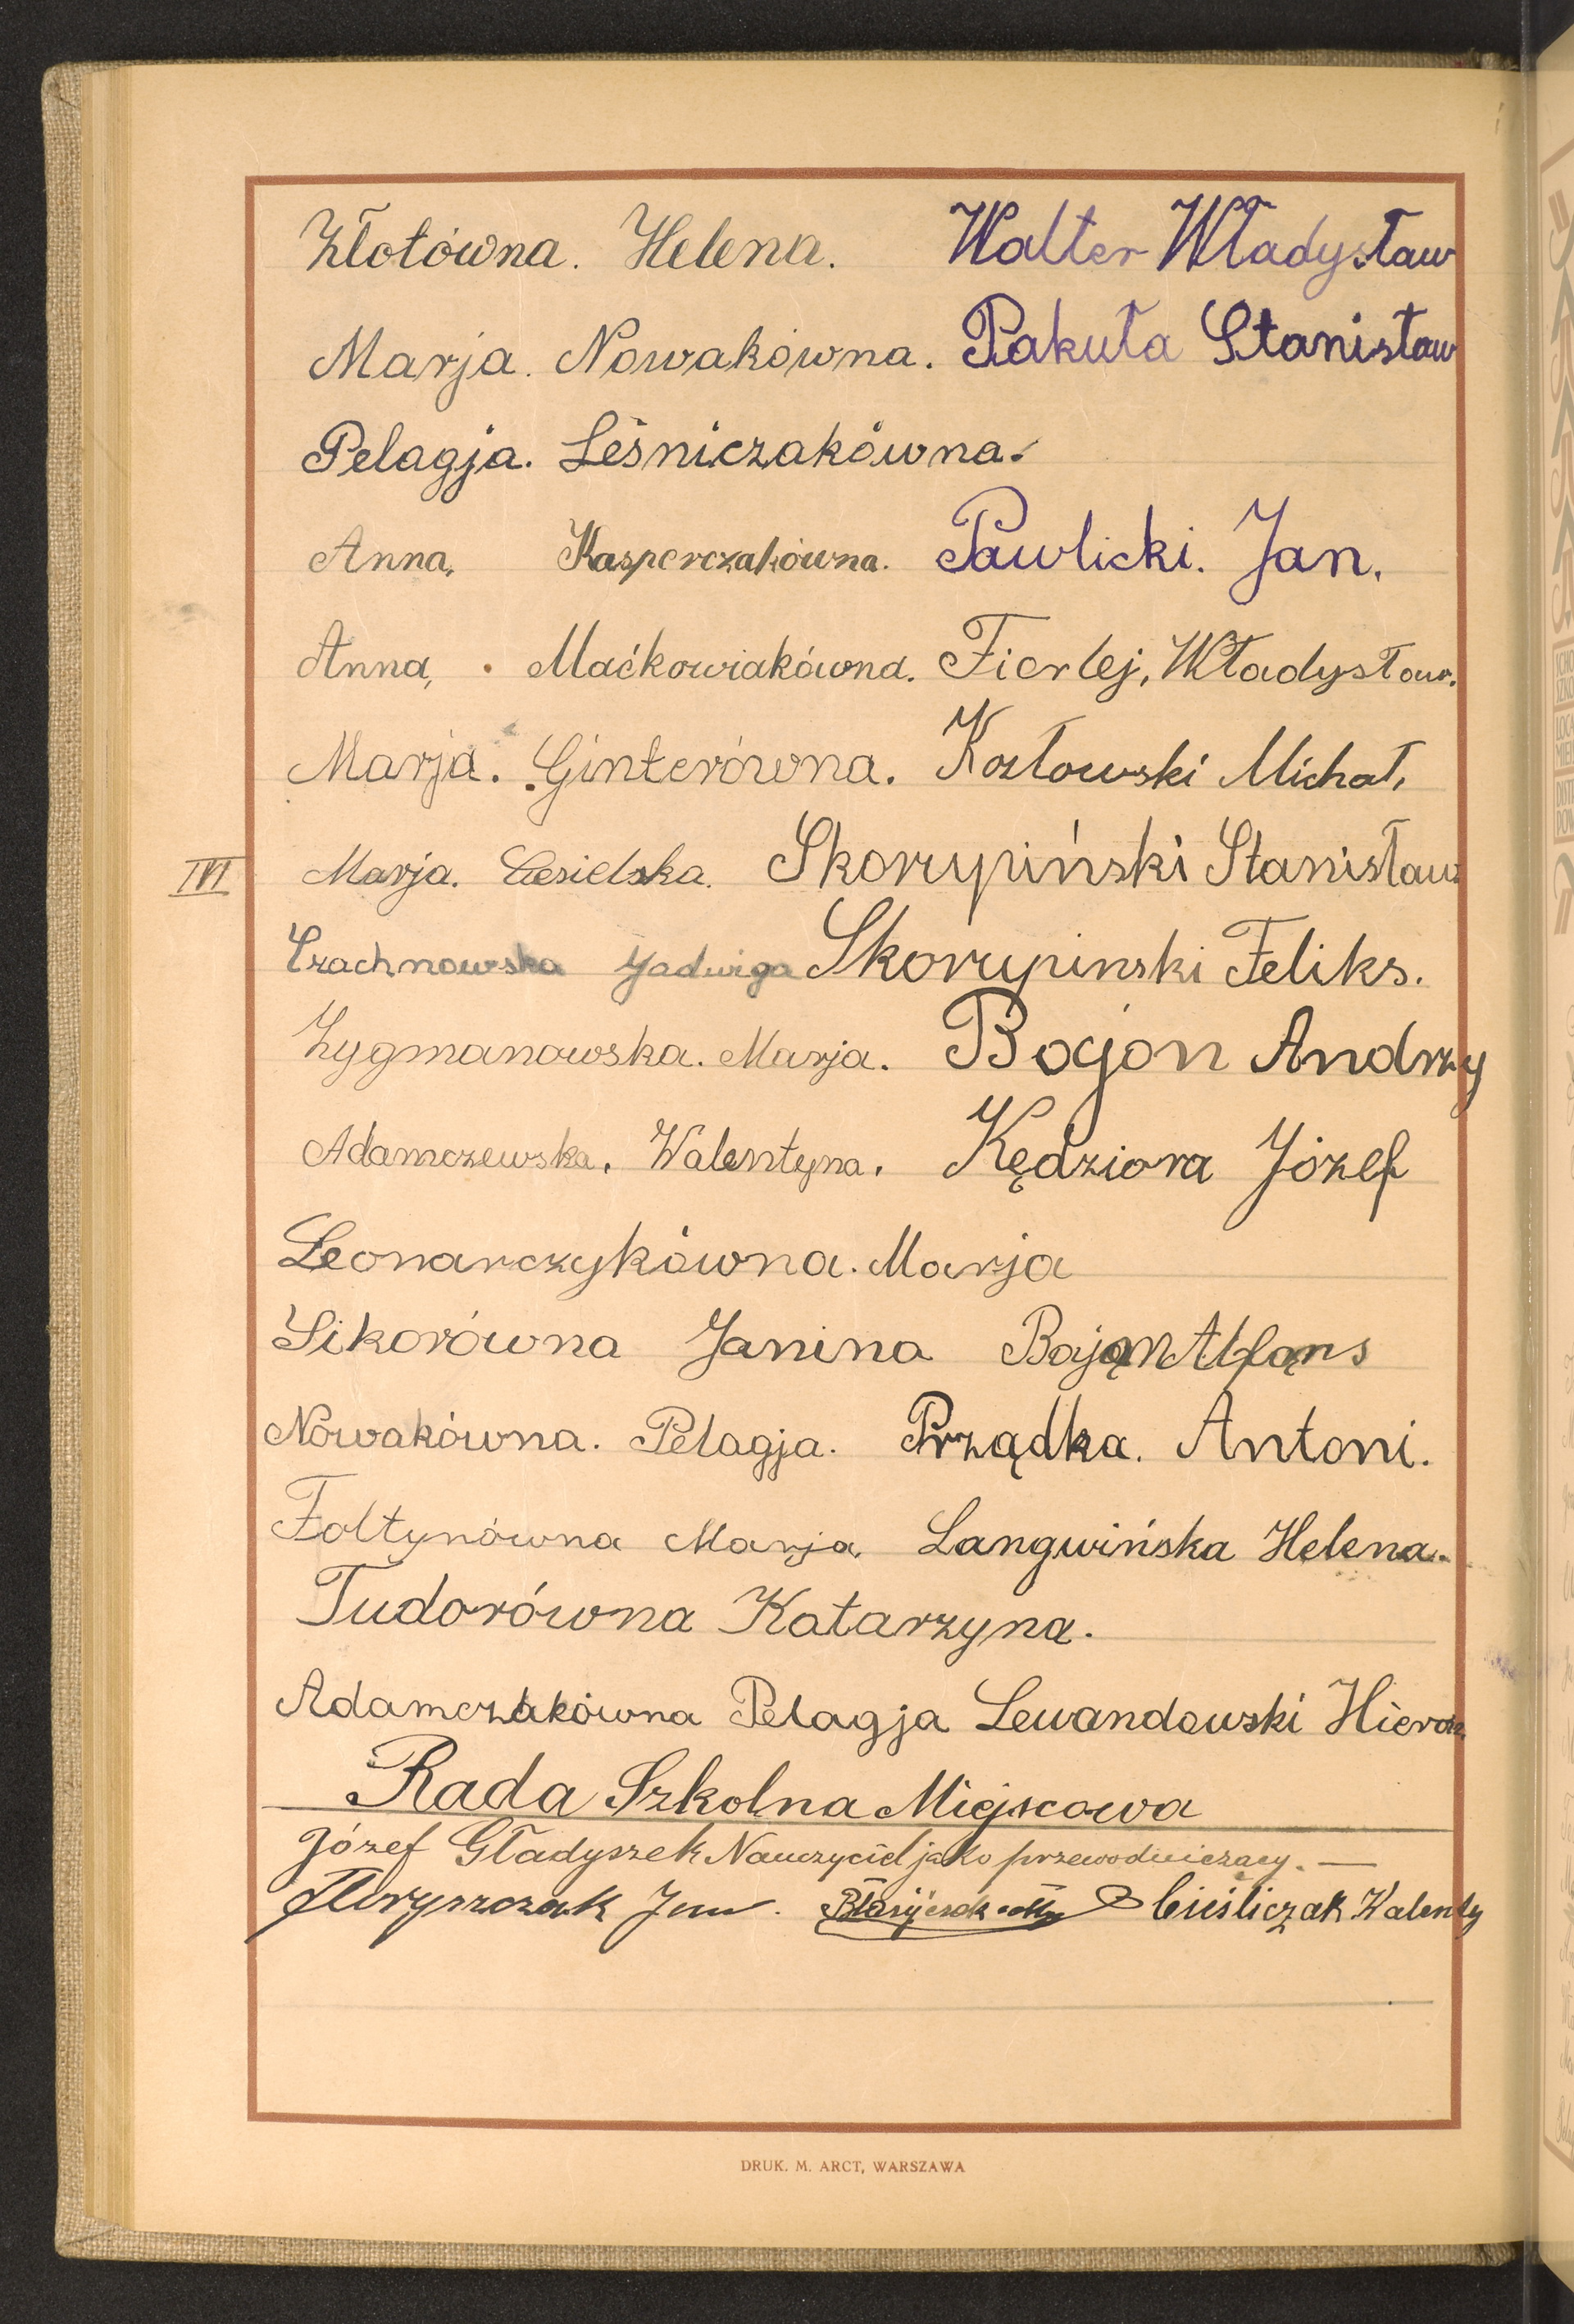 Złotówna. Helena. Walter Władysław
Marja. Nowakówna. Pakuła Stanisław
Pelagja. Leśniczakówna.
Anna, Kasperczakówna. Pawlicki. Jan.
Anna, Maćkowiakówna. Fierlej, Władysław.
Marja. Ginterówna. Kozłowski Michał,
IVI Marja. Cesielska. Skorupiński Stanisław
Czachnowska Jadwiga Skorupinski Feliks.
Zygmanowska. Marja. Bojon Andrzy
Adamczewska. Walentyna. Kędziora Józef
Leonarczykówna. Marja
Sikorówna Janina Bająn Alfąns
Nowakówna. Pelagja. Prządka. Antoni.
Foltynówna Marja, Langwińska Helena.
Tudorówna Katarzyna.
Adamczakówna Pelagja Lewandowski Hieron.
Rada Szkolna Miejscowa
Józef Gładyszek Nauczyciel jako przewodniczący. —
Jan. Cieśliczak Walenty
DRUK. M. ARCT, WARSZAWA